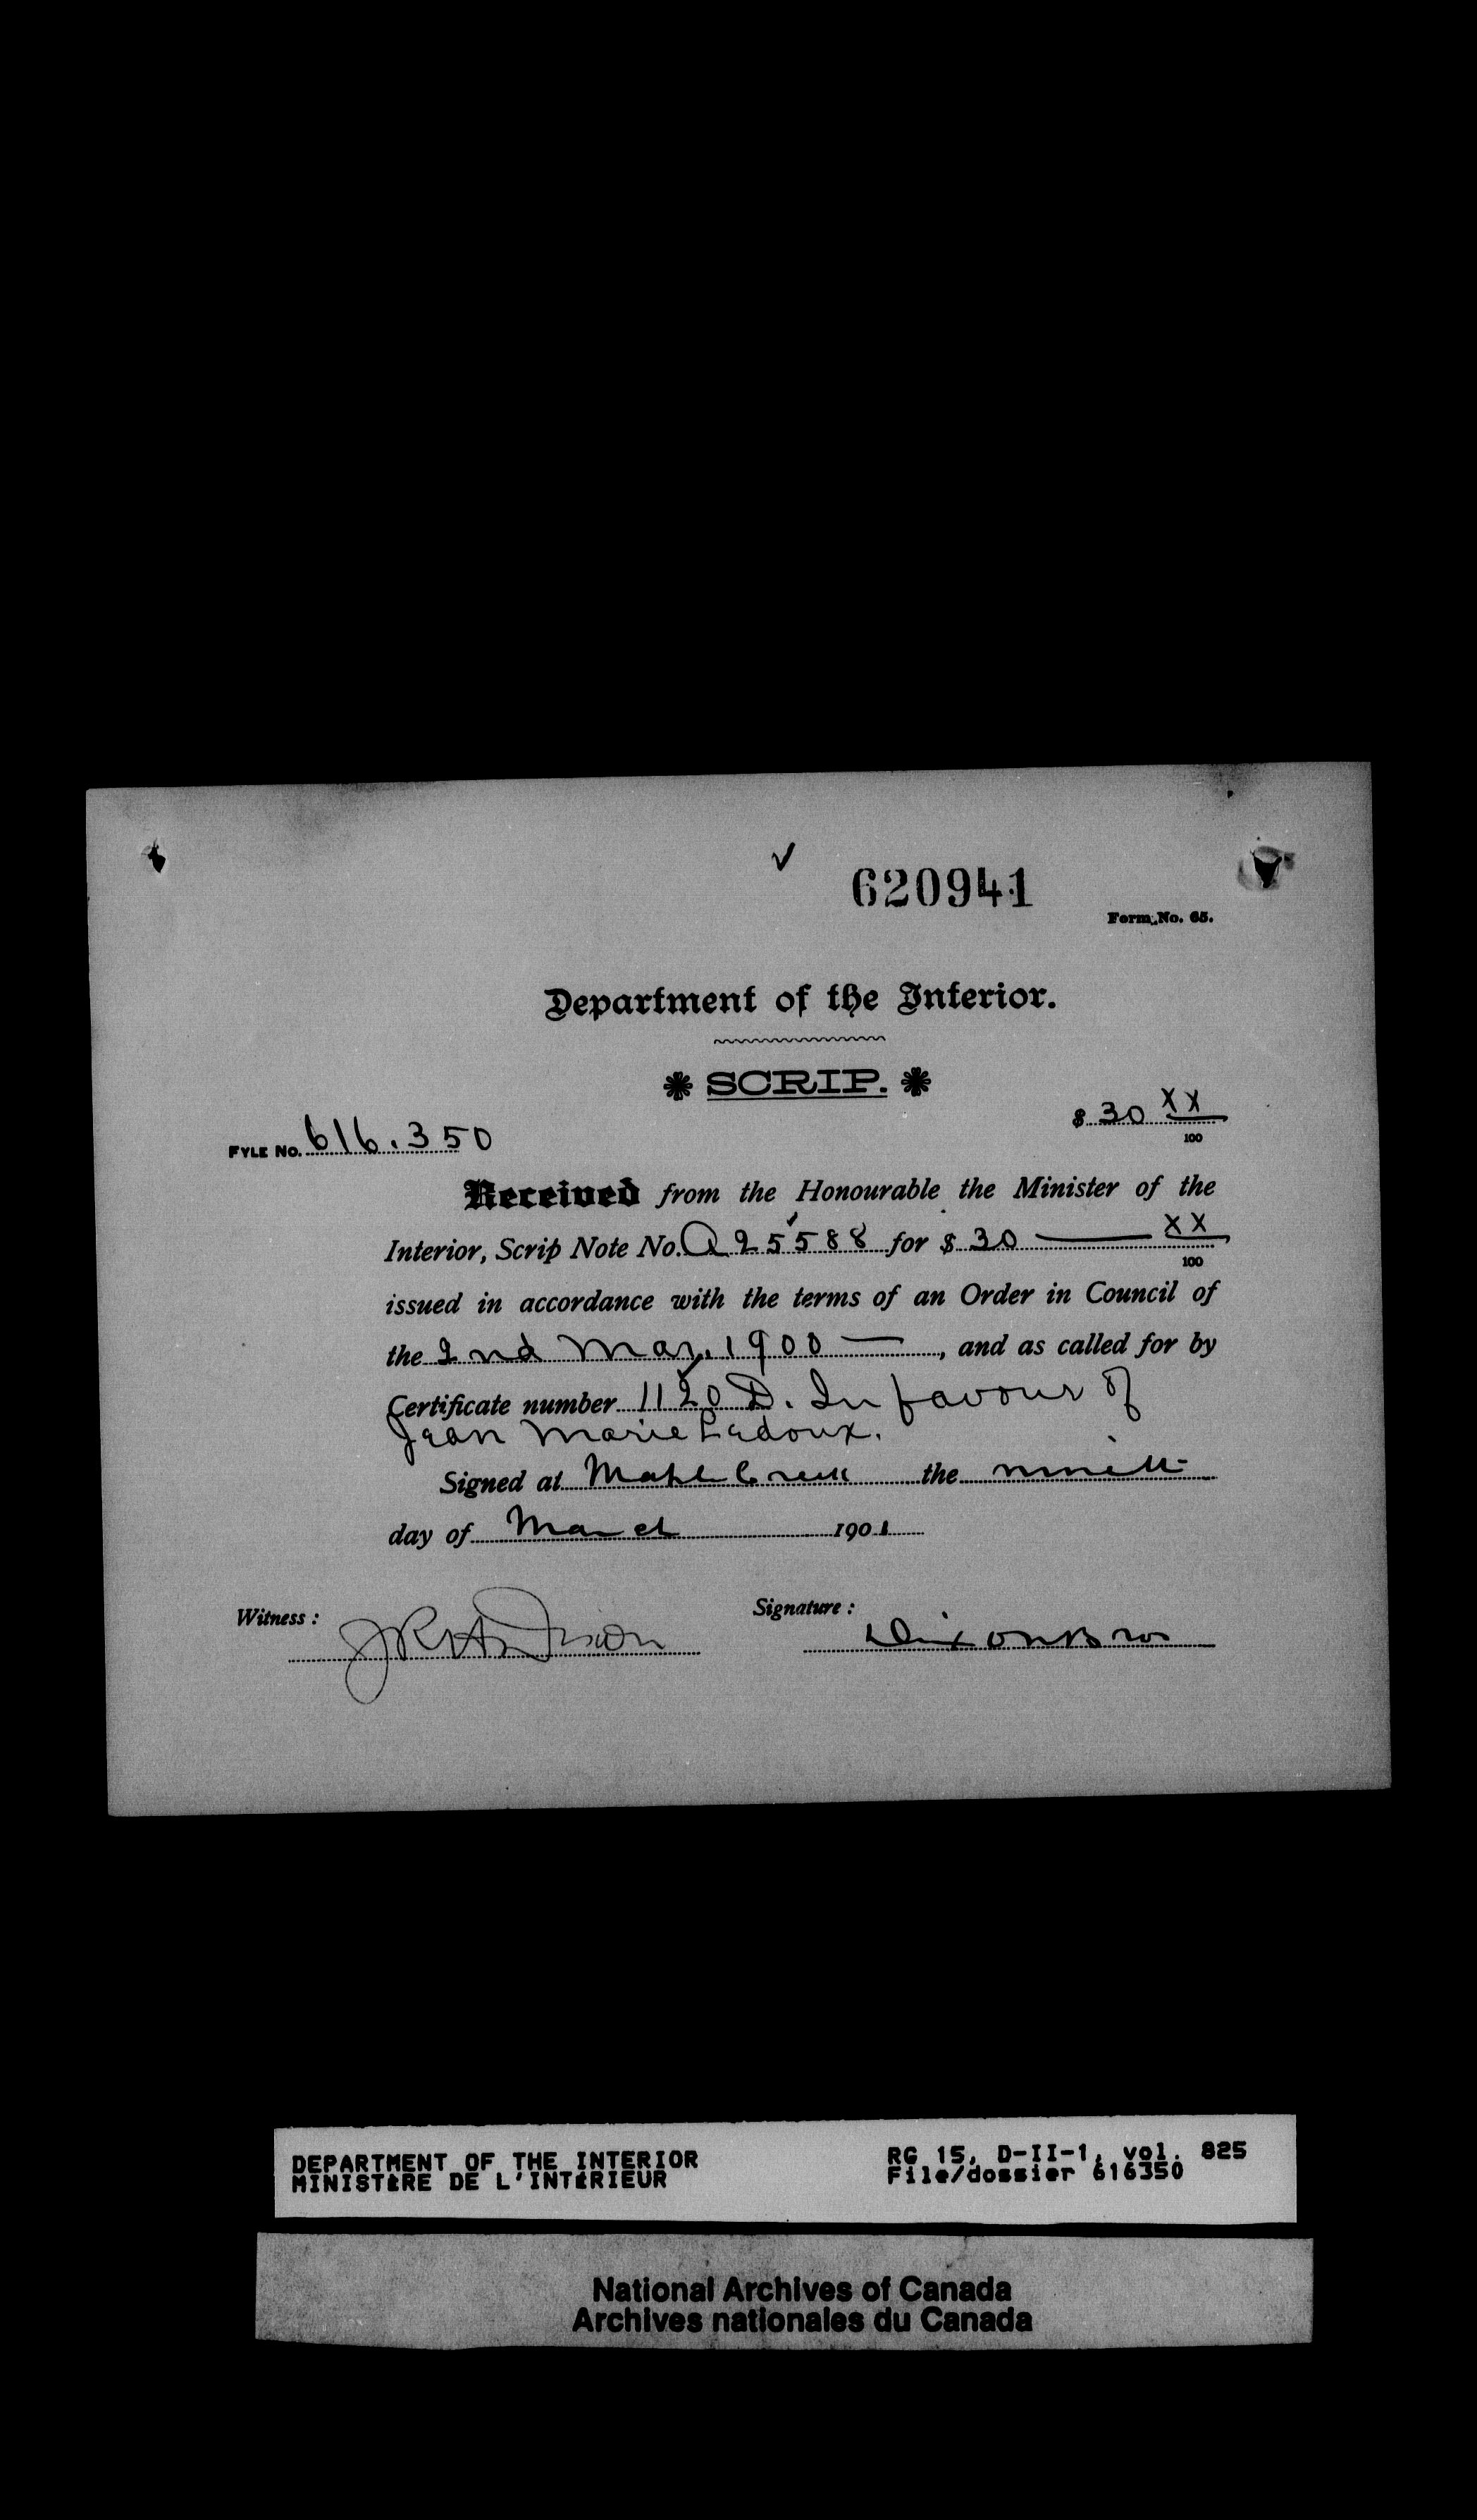 ✓
620941
Form No. 65.
Department of the Interior.
SCRIP.
$ 30 XX/100
FYLE NO. 616.350
Received from the Honourable the Minister of the
Interior, Scrip Note No. A 25588 for $ 30 — XX/100
issued in accordance with the terms of an Order in Council of
the 2nd Mar. 1900 —, and as called for by
Certificate number 1120 D. In favour of
Jean Marie Ledoux.
Signed at Maple Creek the ninth
day of March 1901
Witness :
Signature :
Dixon Bros
DEPARTMENT OF THE INTERIOR
MINISTÈRE DE L'INTÉRIEUR
RG 15, D-II-1, vol. 825
File/dossier 616350
National Archives of Canada
Archives nationales du Canada